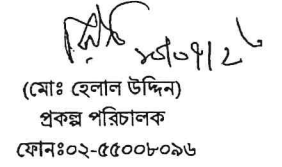 (মোঃ হেলাল উদ্দিন)
প্রকল্প পরিচালক
ফোনঃ০২-৫৫০০৮০৯৬